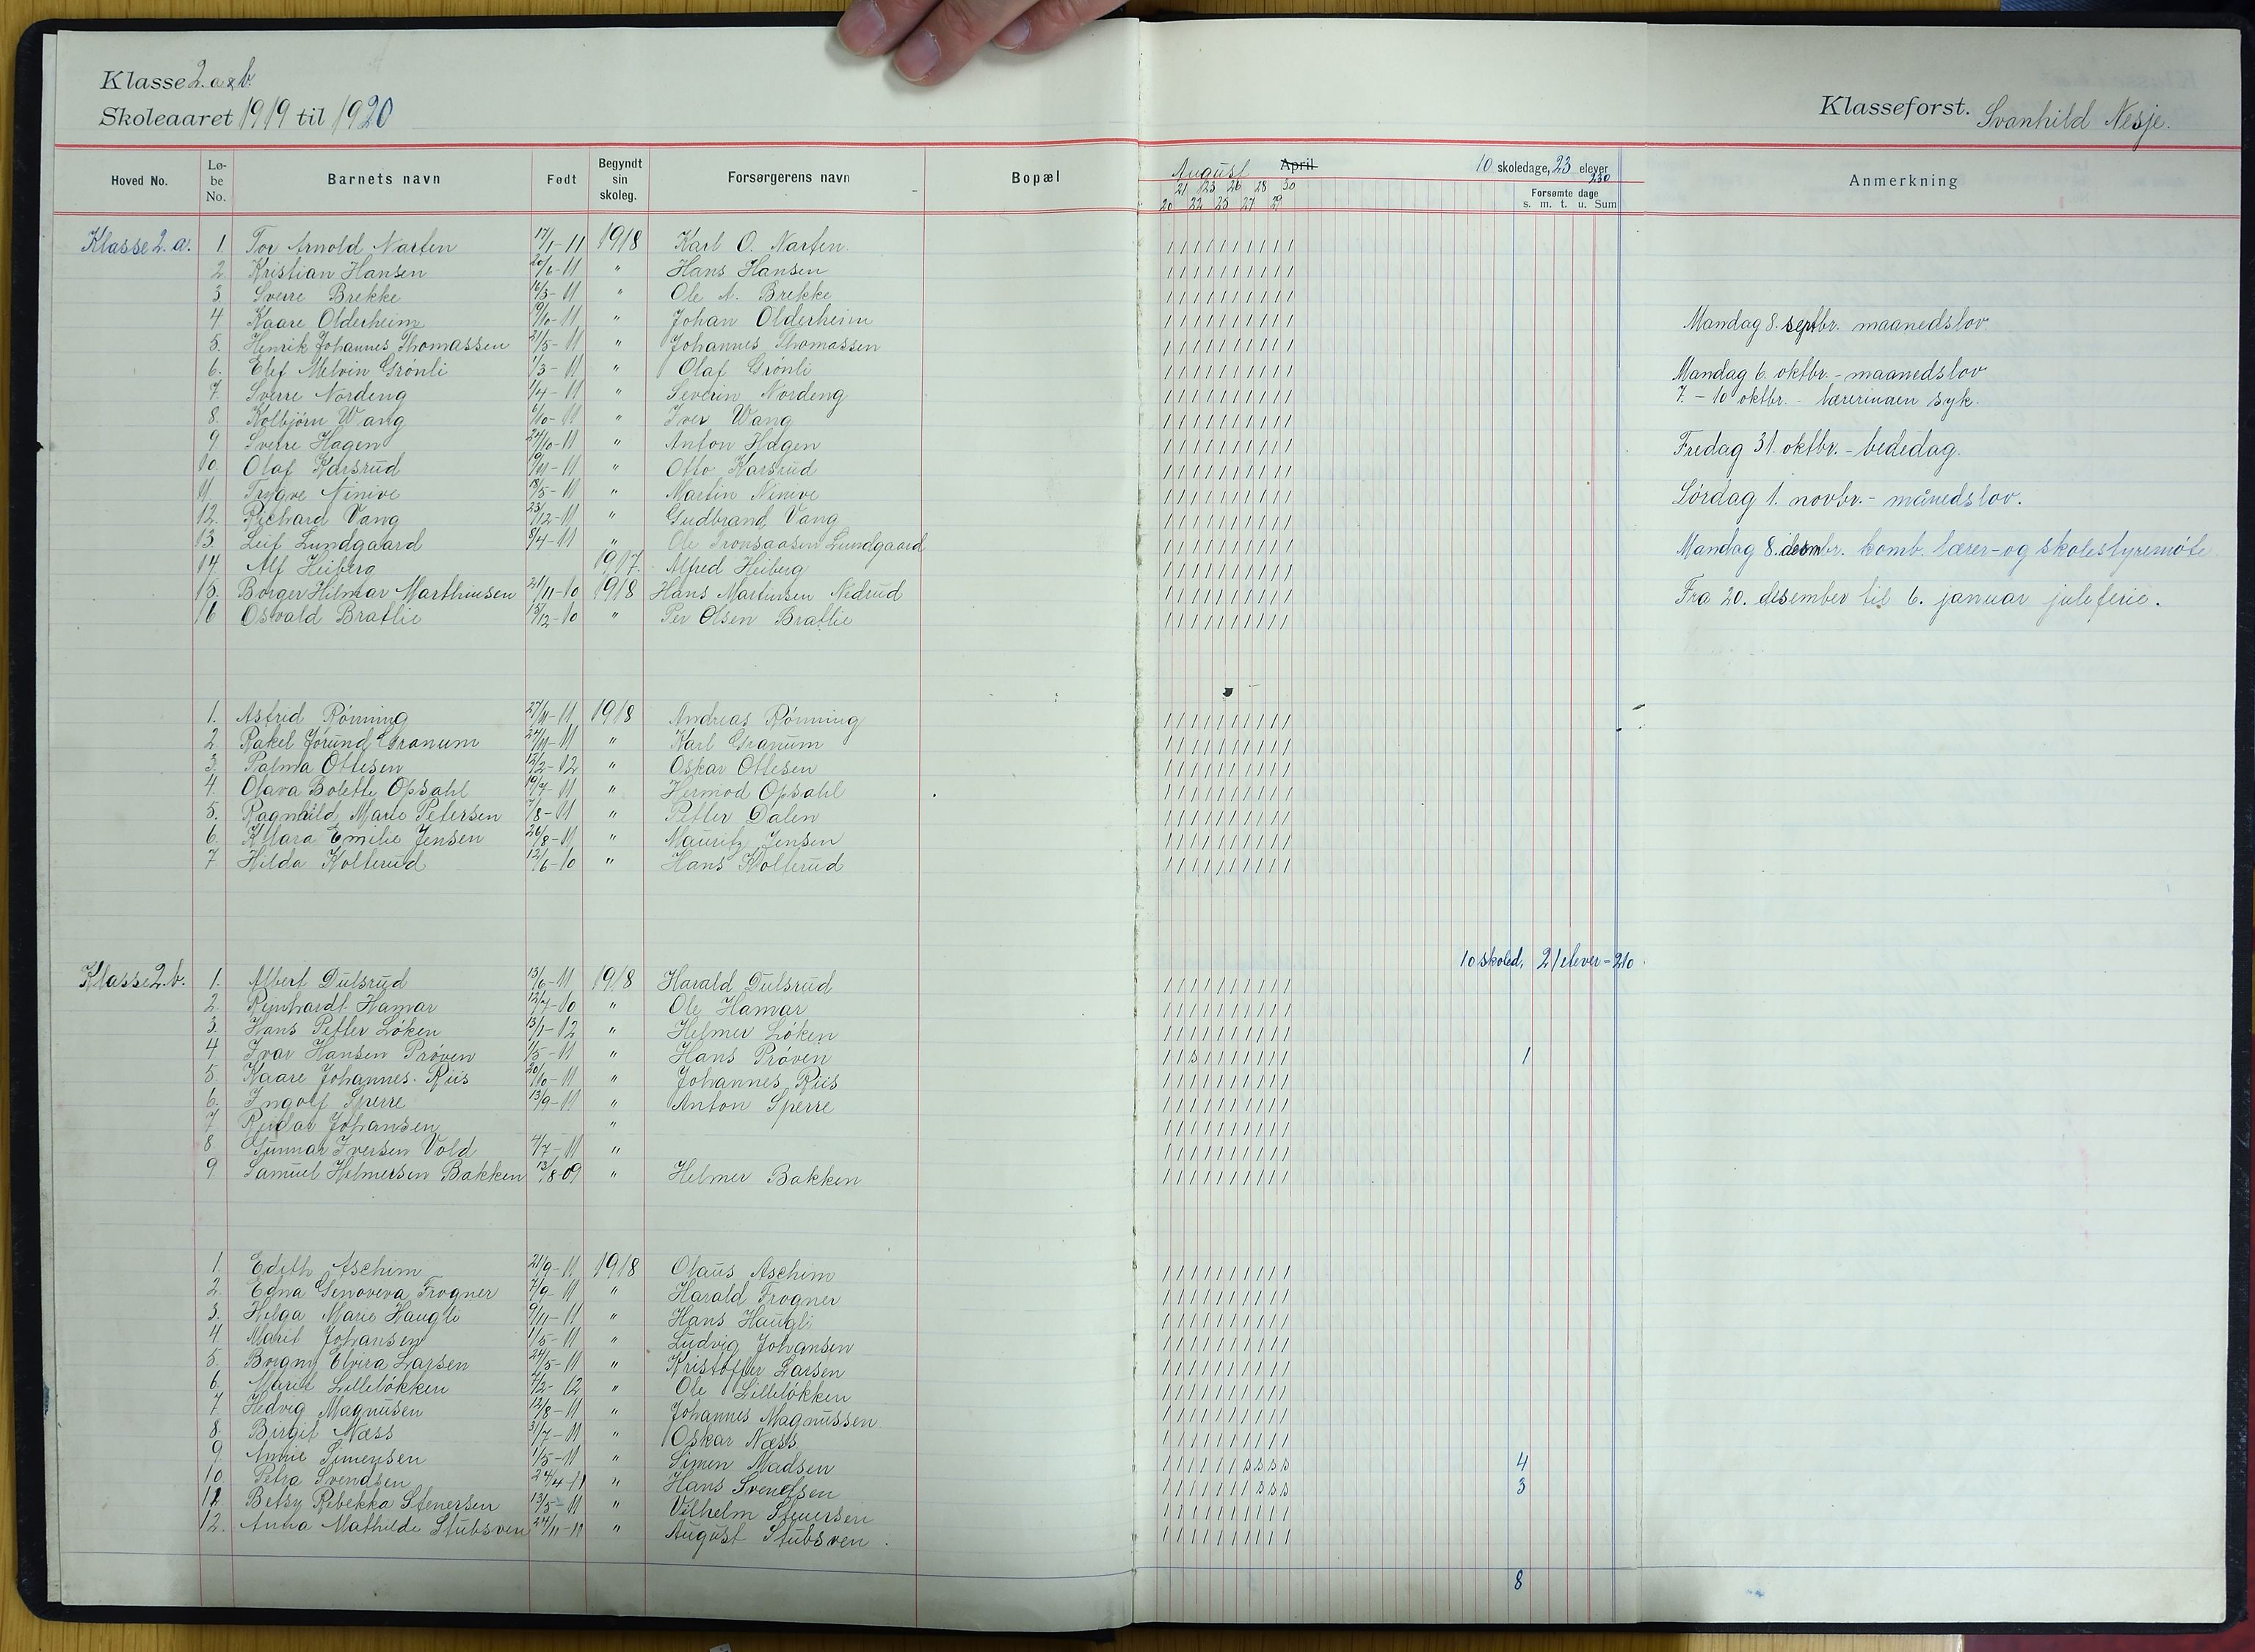 Klasse 2. a & b.
Skoleaaret 1919 til 1920
Klasseforst. Svanhild Nesje.
Hoved No. Lø-be No. Barnets navn Født Begyndt sin skoleg. Forsørgerens navn Bopæl August April 10 skoledage, 23 elever 230 Anmerkning
21 23 26 28 30 Forsømte dage
20 22 25 27 29 s. m. t. u. Sum
Klasse 2. a. 1. Tor Arnold Narten 17/1-11 1918 Karl O. Narten
2. Kristian Hansen 20/6-11 " Hans Hansen
3. Sverre Brekke 16/3-11 " Ole A. Brekke
4. Kaare Olderheim 19/10-11 " Johan Olderheim
Mandag 8. septbr. maanedslov
5. Henrik Johannes Thomassen 21/5-11 " Johannes Thomassen
6. Elef Melvin Grönli 1/3-11 " Olaf Grönli
Mandag 6. oktbr. - maanedslov
7. Sverre Nordeng 1/4-11 " Severin Nordeng
7. - 10 oktbr. - lærerinnen syk.
8. Kolbjörn Wang 6/10-11 " Iver Wang
9 Sverre Hagen 24/10-11 " Anton Hagen
Fredag 31. oktbr. - bededag.
10. Olaf Karsrud 19/11-11 " Otto Karsrud
11. Trygve Ninive 18/5-11 " Martin Ninive
Lördag 1. novbr. - månedslov.
12. Richard Vang 23/12-11 " Gudbrand Vang
13 Leif Lundgaard 8/4-11 " Ole Tronsaasen Lundgaard
Mandag 8. desmbr. komb. lærer- og skolestyremöte
14 Alf Heiberg 1917. Alfred Heiberg
15. Borger Hilmar Marthinsen 21/11-10 1918 Hans Martinsen Nedrud
Fra 20. desember til 6. januar juleferie.
16 Osvald Bratlie 15/12-10 " Per Olsen Bratlie
1. Astrid Rönning 27/11-11 1918 Andreas Rönning
2. Rakel Jorund Granum 24/11-11 " Karl Granum
3. Palma Ottesen 12/2-12 " Oskar Ottesen
4. Olava Bolette Opsahl 19/7-11 " Hermod Opsahl
5. Ragnhild Marie Petersen 7/8-11 " Petter Dalen
6. Klara Emilie Jensen 26/8-11 " Mauritz Jensen
7 Hilda Kolterud 12/6-10 " Hans Kolterud
10 skoled. 21 elever = 210.
Klasse 2. b. 1. Albert Dulsrud 13/6-11 1918 Harald Dulsrud
2. Reinhardt Hamar 12/7-10 " Ole Hamar
3. Hans Petter Löken 13/1-12 " Helmer Löken
4 Ivar Hansen Pröven 1/5-11 " Hans Pröven 1
5. Kaare Johannes Riis 20/10-11 " Johannes Riis
6. Ingolf Sperre 13/9-11 " Anton Sperre
7 Reidar Johansen "
8 Gunnar Iversen Vold 4/7-11 "
9 Samuel Helmersen Bakken 13/8 09 " Helmer Bakken
1. Edith Aschim 21/9-11. 1918 Olaus Aschim
2. Edna Genoveva Frogner 7/9-11 " Harald Frogner
3. Helga Marie Haugli 9/11-11 " Hans Haugli
4 Marit Johansen 1/5-11 " Ludvig Johansen
5. Borgny Elvira Larsen 24/5-11 " Kristoffer Larsen
6. Marit Lillelökken 4/2-12 " Ole Lillelökken
7 Hedvig Magnusen 12/8-11 " Johannes Magnussen
8. Birgit Næss 31/7-11 " Oskar Næss
9 Annie Simensen 1/5-11 " Simen Madsen 4
10 Petra Svendsen 24/4-11 " Hans Svendsen 3
11. Betsy Rebekka Stenersen 13/5-11 " Vilhelm Stenersen
12. Anna Mathilde Stubsven 24/11-11 " August Stubsven.
8